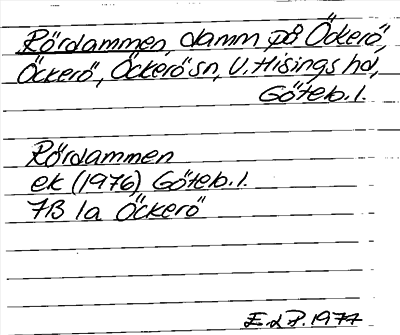 Rördammen, damm på Öckerö,
Öckerö, Öckerö sn, V. Hisings hd,
Göteb. l.
Rördammen
ek (1976) Göteb. l.
7B 1a Öckerö
E. d P. 1977